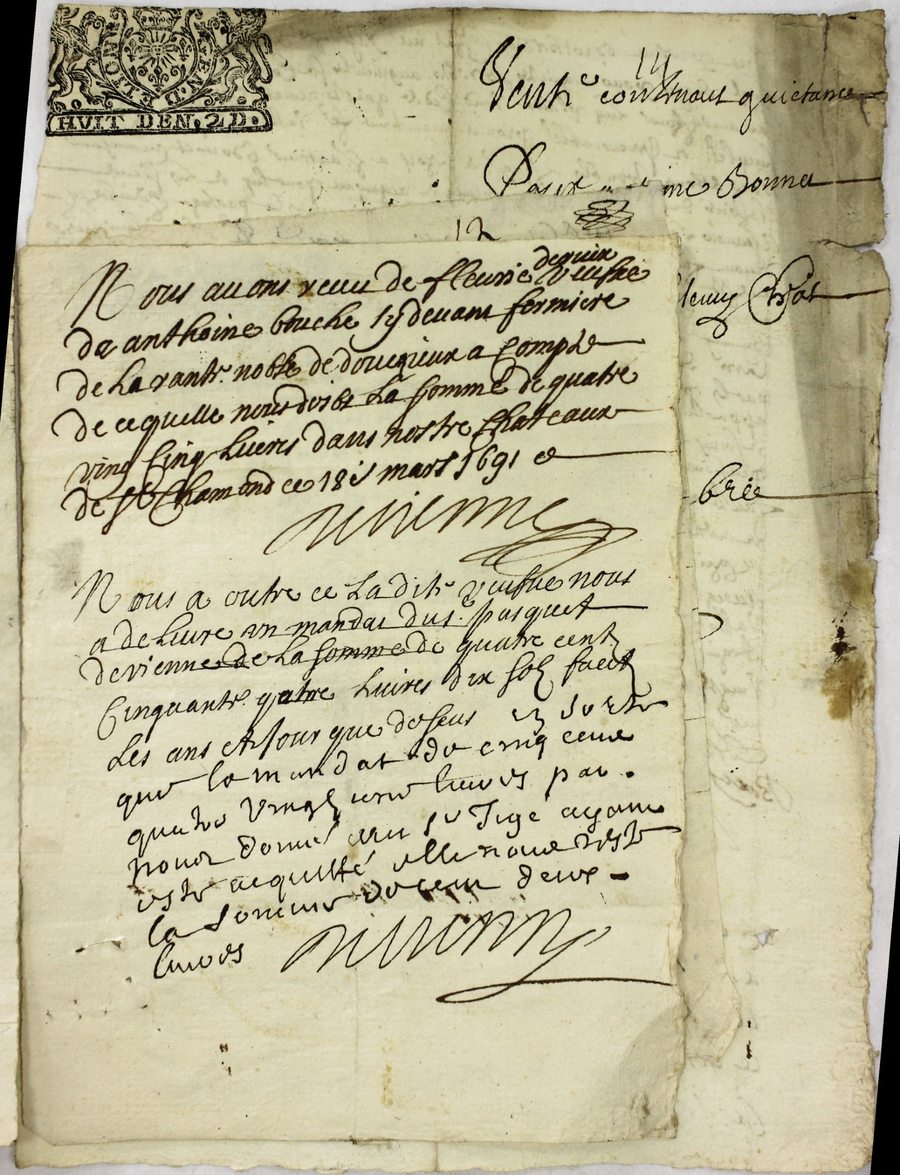 GENE DE LION
HVIT DEN. 2 D.
14
Vente contenant quictance
Bonnet
12
Nous avons receu de fleurie dervix veufve
de anthoine bouche sy devant fermiere
de la rante noble de doucieux a Compte
de ce quelle nous doibt La Somme de quatre
ving Cinq Livres dans nostre Chateaux
de St Chamond ce 18e mars 1691
Nous a outre ce La dite veufve nous
a delivré un mandat du sr. pasquet
de vienne de La Somme de quatre cent
Cinquante quatre livres dix sols faict
Les ans et Jour que deseus en sorte
que le mandat de cinq cens
quatre vingt livres par
nous donné au sr Tigé ayant
este acquitté elle nous reste
la somme de cent deux
livres